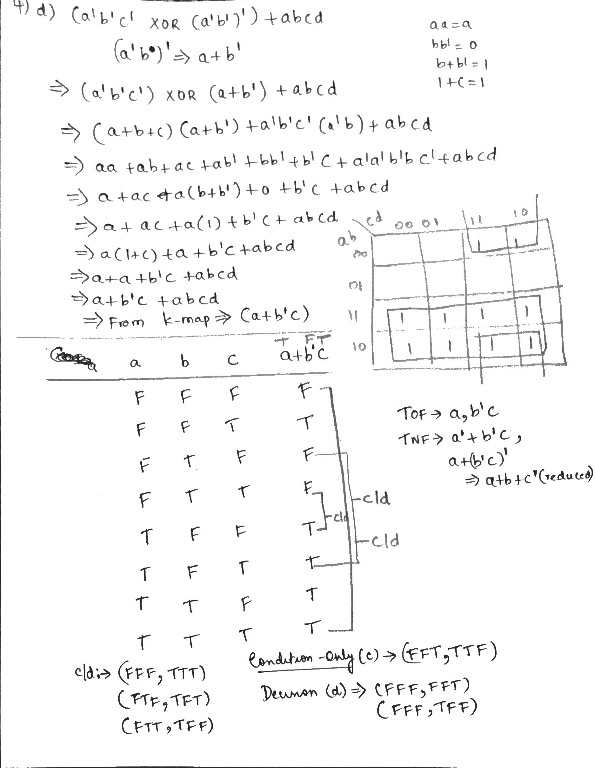 4) d) (a'b'c' XOR (a'b')') + abcd
(a'b')' ⇒ a+b'
⇒ (a'b'c') XOR (a+b') + abcd
⇒ (a+b+c) (a+b') + a'b'c' (a'b) + abcd
⇒ aa + ab + ac + ab' + bb' + b'c + a'a'b'b c' + abcd
⇒ a + ac + a(b+b') + 0 + b'c + abcd
⇒ a + ac + a(1) + b'c + abcd
⇒ a(1+c) + a + b'c + abcd
⇒ a+a + b'c + abcd
⇒ a+b'c + abcd
⇒ From k-map ⇒ (a+b'c)
aa = a
bb' = 0
b+b' = 1
1+c = 1
cd 00 01 11 10
ab
00 1 1
01
11 1 1 1 1
10 1 1 1 1
T F T
a b c a+b'c
F F F F
F F T T
F T F F
F T T F
T F F T
T F T T
T T F T
T T T T
c/d
c/d
c/d
TOF → a, b'c
TNF → a' + b'c,
a+(b'c)'
⇒ a+b+c' (reduced)
c/d:→ (FFF, TTT)
(FTF, TFT)
(FTT, TFF)
Condition-Only (c) → (FFT, TTF)
Decision (d) ⇒ (FFF, FFT)
(FFF, TFF)